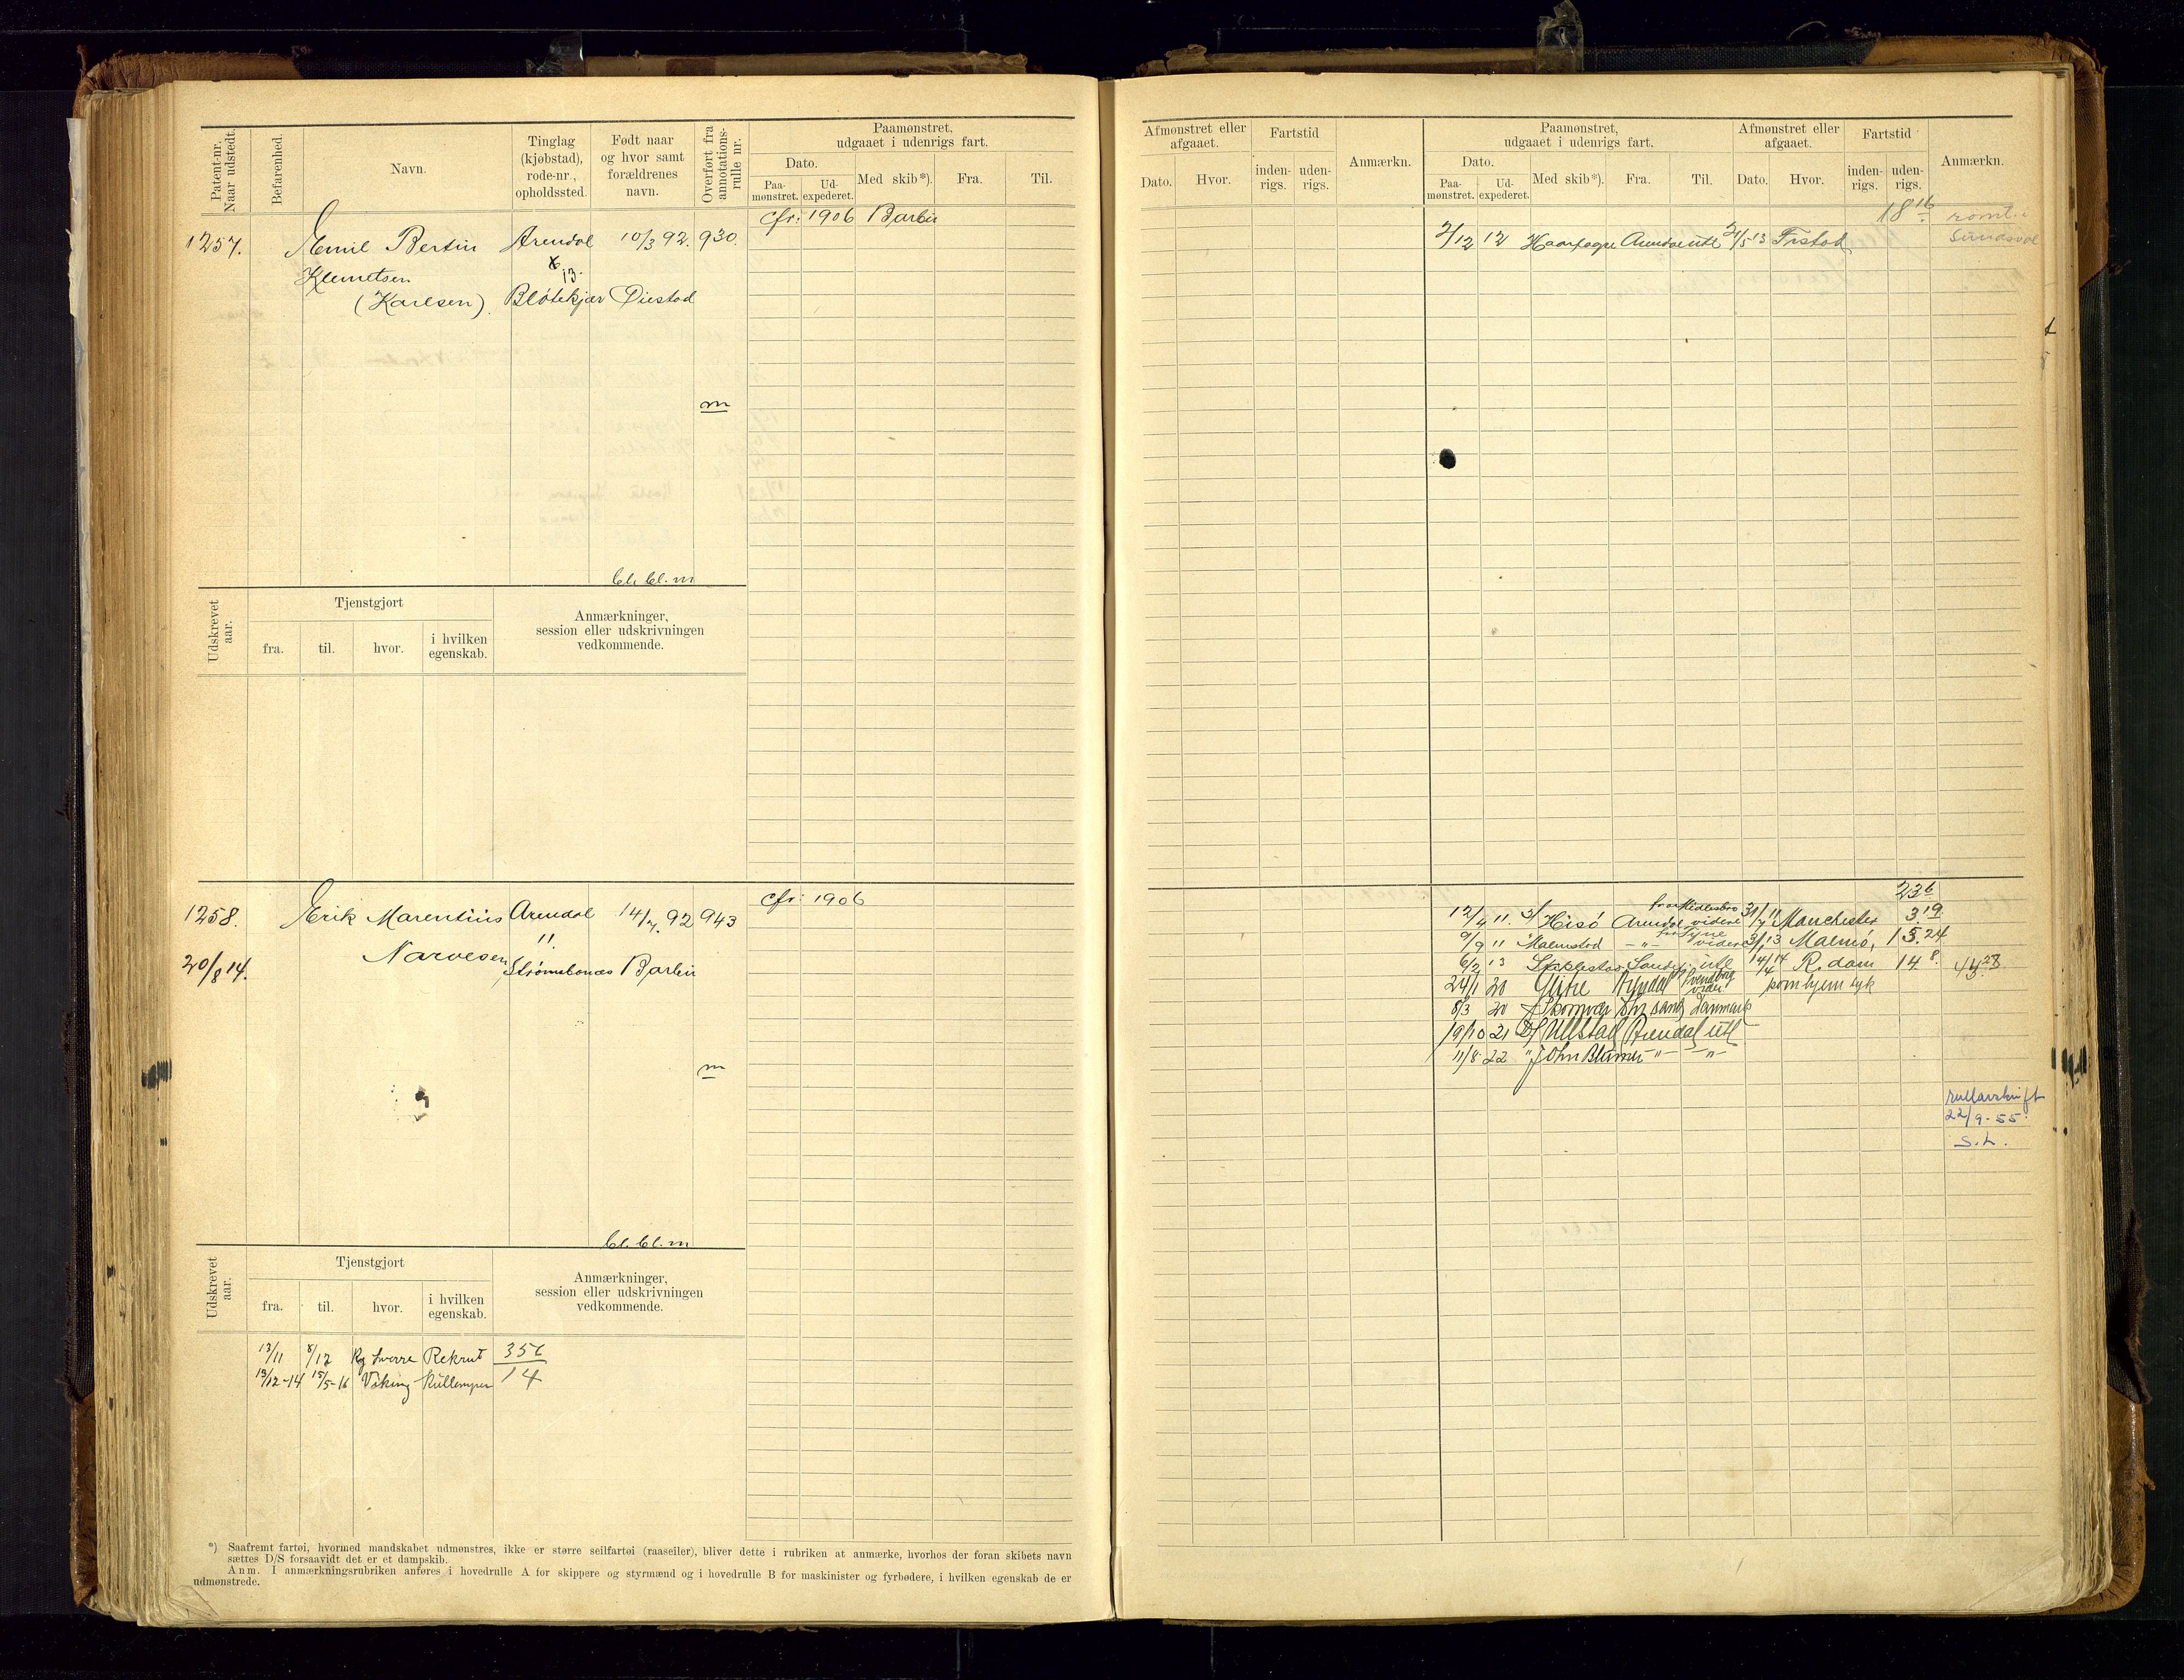 Patent-nr. Naar udstedt.
Befarenhed.
Navn.
Tinglag (kjøbstad), rode-nr., opholdssted.
Født naar og hvor samt forældrenes navn.
Overført fra annotations-rulle nr.
Paamønstret, udgaaet i udenrigs fart.
Dato.
Paa-mønstret.
Ud-expederet.
Med skib*).
Fra.
Til.
cfr: 1906 Barbu
1257. Emil Bertin Arendal 10/3 92. 930.
Klemetsen 13.
(Karlsen). Bløtekjær Øiestad
m
bl. bl. m
Udskrevet aar.
Tjenstgjort
fra.
til.
hvor.
i hvilken egenskab.
Anmærkninger, session eller udskrivningen vedkommende.
cfr: 1906
1258. Erik Marentius Arendal 14/7. 92 943
Narvesen 11.
20/8 14. Strømsbonæs Barbu
m
bl. bl. m
Udskrevet aar.
Tjenstgjort
fra.
til.
hvor.
i hvilken egenskab.
Anmærkninger, session eller udskrivningen vedkommende.
13/11 8/12 Kg Sverre Rekrut 356
13/12-14 15/5-16 Viking Kullemper 14
*) Saafremt fartøi, hvormed mandskabet udmønstres, ikke er større seilfartøi (raaseiler), bliver dette i rubriken at anmærke, hvorhos der foran skibets navn
sættes D/S forsaavidt det er et dampskib.
Anm. I anmærkningsrubriken anføres i hovedrulle A for skippere og styrmænd og i hovedrulle B for maskinister og fyrbødere, i hvilken egenskab de er
udmønstrede.
Afmønstret eller afgaaet.
Dato.
Hvor.
Fartstid
inden-rigs.
uden-rigs.
Anmærkn.
Paamønstret, udgaaet i udenrigs fart.
Dato.
Paa-mønstret.
Ud-expederet.
Med skib*).
Fra.
Til.
Afmønstret eller afgaaet.
Dato.
Hvor.
Fartstid
inden-rigs.
uden-rigs.
Anmærkn.
18 16 rømt i
2/12 12 Haarfagre Arendal utl 21/5 13 Frstad Sundsval
23 6
12/4 11. Hisö Arendal videre 31/7 11 Manchester 3.19.
9/9 11 Malmstad -"- videre 3/1 13 Malmö, 15.24
6/2 13 Sandej. utl 14/4 14 R.dam 14 8.
24/1 20 Glitre Arendal Svendborg kom hjem syk
8/3 20 Danmark
19/10 21 D/S Ullstad Arendal utl
11/8 22 " John Blumer -"- -"-
rulleavskrift
22/9-55.
S.L.